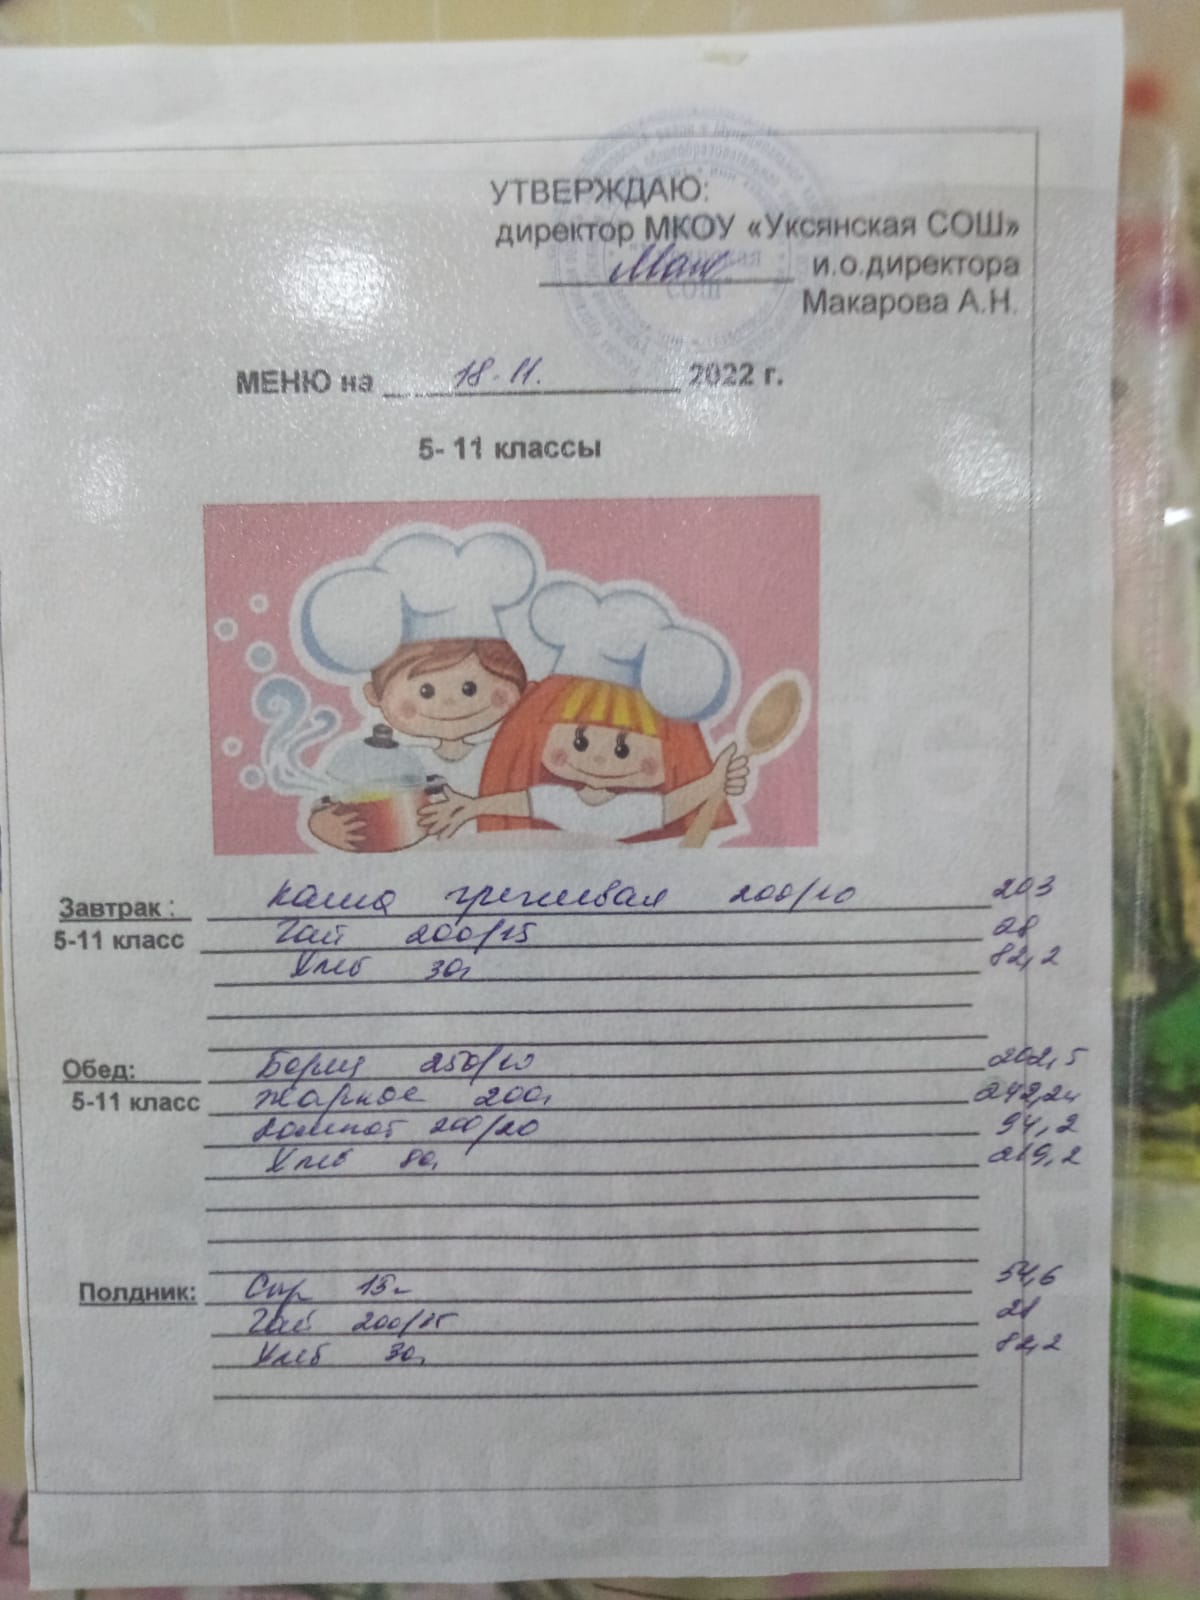 УТВЕРЖДАЮ:
директор МКОУ «Уксянская СОШ»
и.о.директора
Макарова А.Н.
МЕНЮ на 18.11. 2022 г.
5- 11 классы
Завтрак : каша гречневая 200/10 203
5-11 класс Чай 200/15 28
Хлеб 30г 82,2
Обед: Борщ 250/10 202,5
5-11 класс Жаркое 200г 242,24
компот 200/20 94,2
Хлеб 80г 219,2
Полдник: Сыр 15г 54,6
Чай 200/15 28
Хлеб 30г 82,2